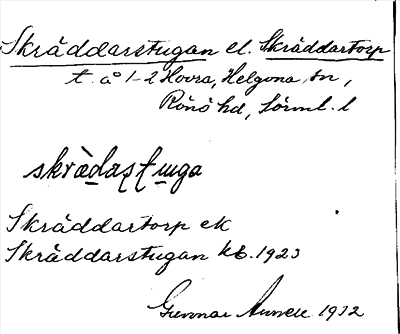 Skräddarstugan el. Skräddartorp
t. å° 1-2 Hovra, Helgona sn,
Rönö hd, Sörml. l
skrädasṭuga
Skräddartorp ek
Skräddarstugan kb. 1923
Gunnar 1932